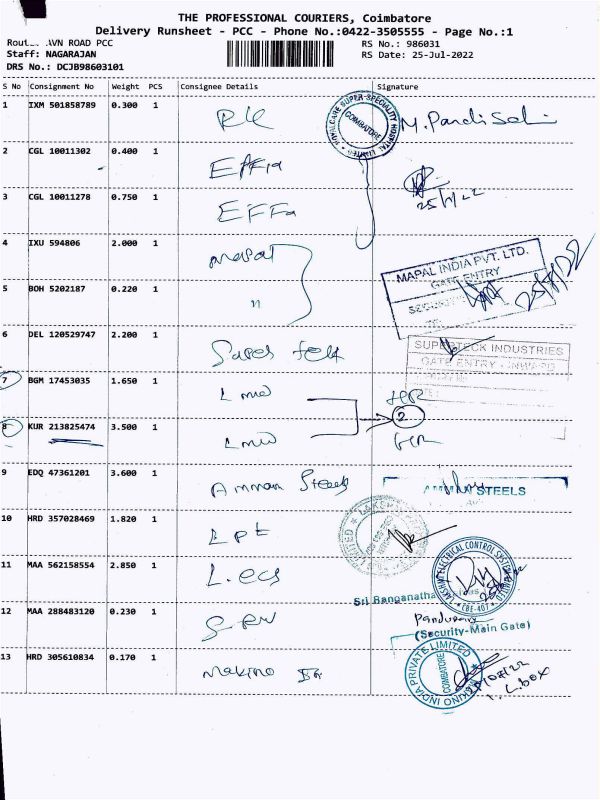 THE PROFESSIONAL COURIERS, Coimbatore
Delivery Runsheet - PCC - Phone No.:0422-3505555 - Page No.:1
AVN ROAD PCC RS No.: 986031
Staff: NAGARAJAN RS Date: 25-Jul-2022
DRS No.: DCJB98603101
S No Consignment No Weight PCS Consignee Details Signature
1 IXM 501858789 0.300 1 RK M. Pandi
COIMBATORE
2 CGL 10011302 0.400 1 Effa
3 CGL 10011278 0.750 1 EFFa
4 IXU 594806 2.000 1 mapal
MAPAL INDIA PVT. LTD.
GATE ENTRY
5 BOH 5202187 0.220 1 "
6 DEL 120529747 2.200 1
SUPERTECK INDUSTRIES
GATE ENTRY - INWARD
7 BGM 17453035 1.650 1 Lmw
8 KUR 213825474 3.500 1 Lmw 2
9 EDQ 47361201 3.600 1 Amman Steels
STEELS
10 HRD 357028469 1.820 1 LPT
11 MAA 562158554 2.850 1 L.ecs
LAKSHMI ELECTRICAL CONTROL SYSTEMS LIMITED
CBE-407
Sri Ranganathar
12 MAA 288483120 0.230 1
(Security-Main Gate)
13 HRD 305610834 0.170 1 Makino
MAKINO INDIA PRIVATE LIMITED
COIMBATORE
L.box